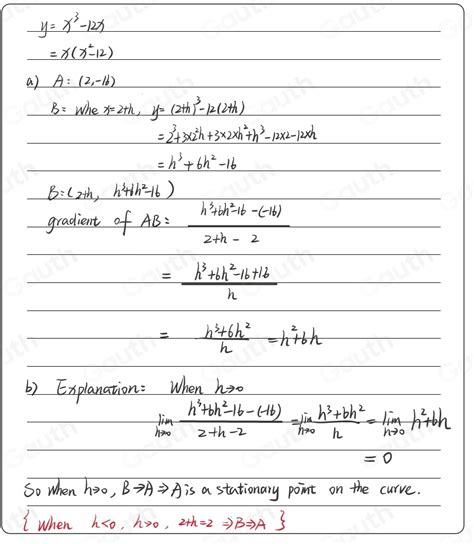 y = x³-12x
= x(x²-12)
a) A: (2,-16)
B: Whe x=2+h, y= (2+h)³-12(2+h)
= 2³+3×2²h+3×2×h²+h³-12×2-12×h
= h³+6h²-16
B:(2+h, h³+6h²-16)
gradient of AB: \frac{h³+6h²-16-(-16)}{2+h-2}
= \frac{h³+6h²-16+16}{h}
= \frac{h³+6h²}{h} = h²+6h
b) Explanation: When h→0
\lim_{h→0} \frac{h³+6h²-16-(-16)}{2+h-2} = \lim_{h→0} \frac{h³+6h²}{h} = \lim_{h→0} h²+6h
= 0
So when h→0, B→A ⇒ A is a stationary point on the curve.
{ When h<0, h→0, 2+h=2 ⇒ B→A }